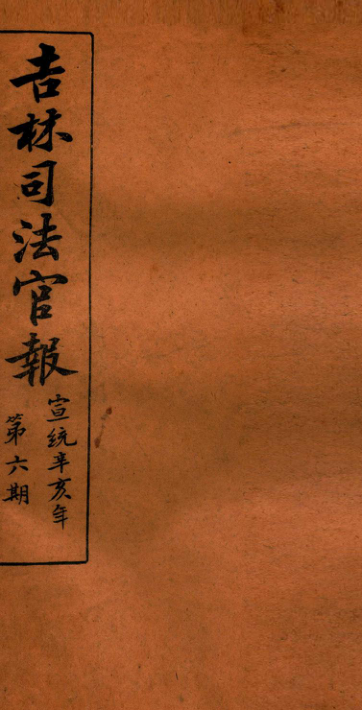 吉林司法官報
宣統辛亥年
第六期